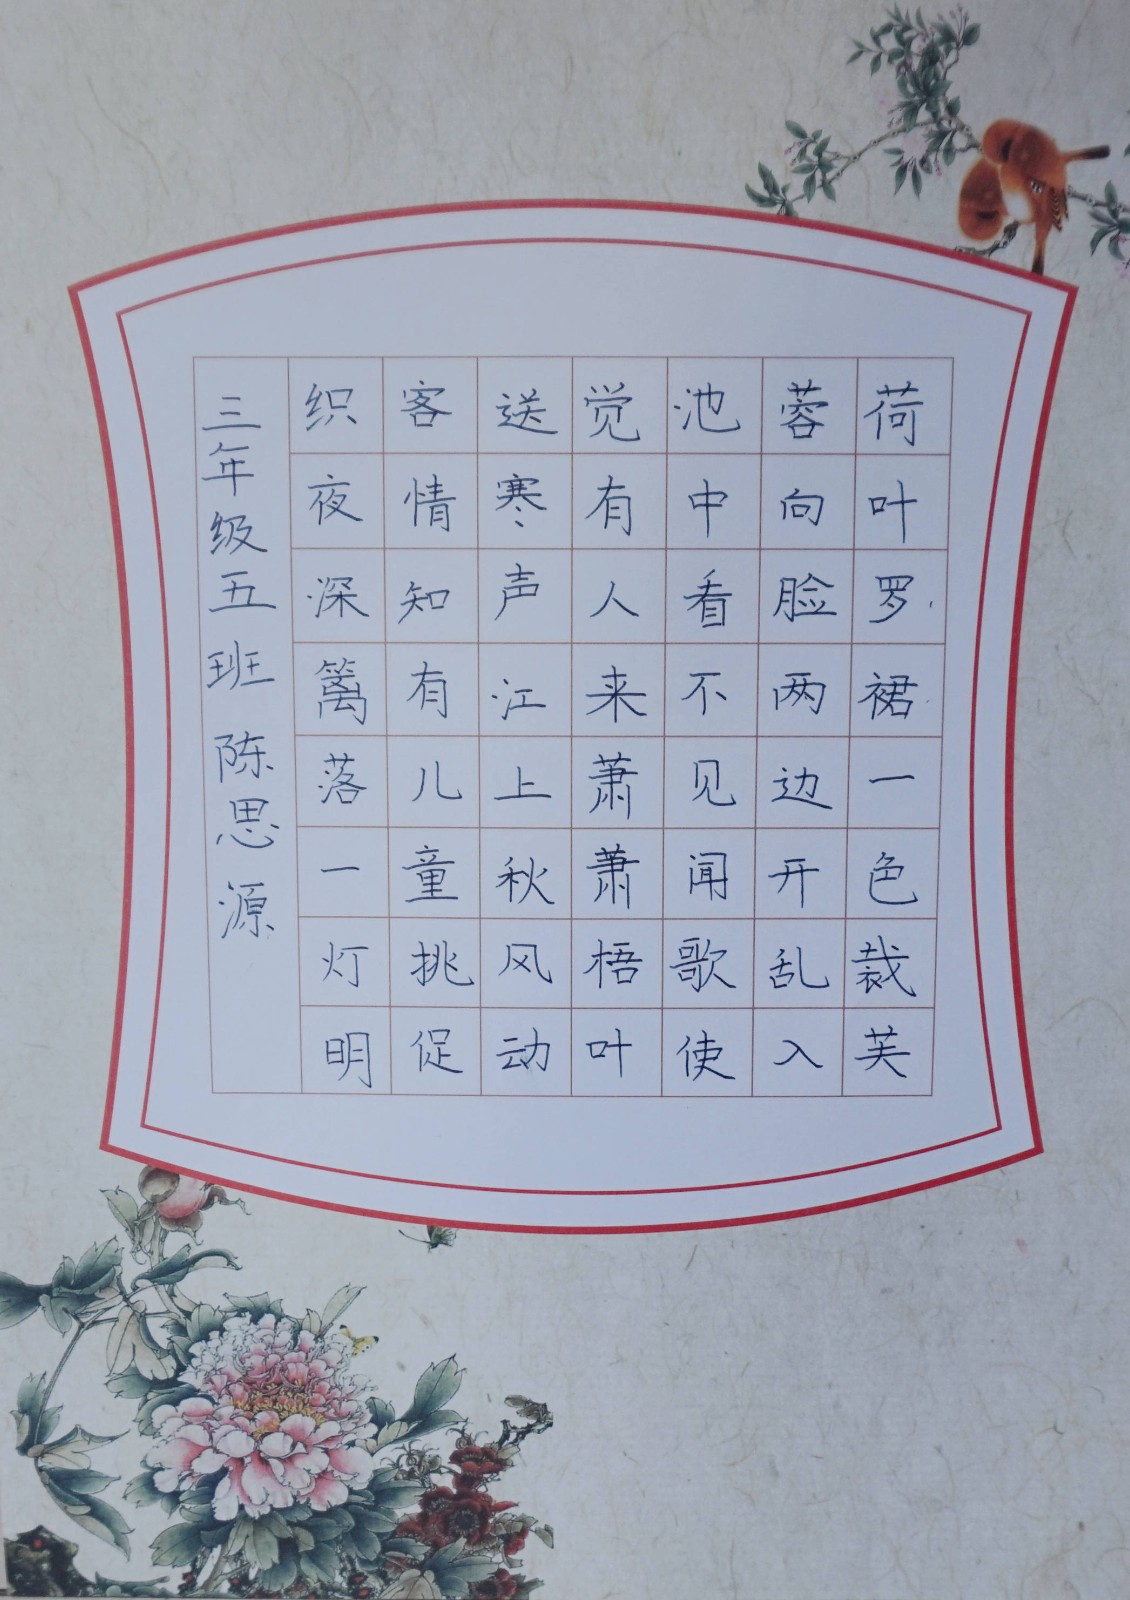 荷叶罗裙一色裁芙
蓉向脸两边开乱入
池中看不见闻歌使
觉有人来萧萧梧叶
送寒声江上秋风动
客情知有儿童挑促
织夜深篱落一灯明
三年级五班陈思源